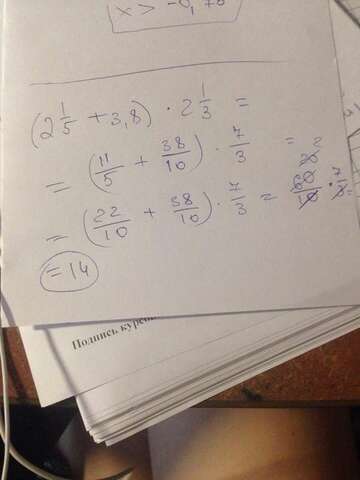 x > -0,76
(2 1/5 + 3,8) · 2 1/3 =
= (11/5 + 38/10) · 7/3 =
= (22/10 + 38/10) · 7/3 = 60/10 · 7/3 =
= 14
Подпись